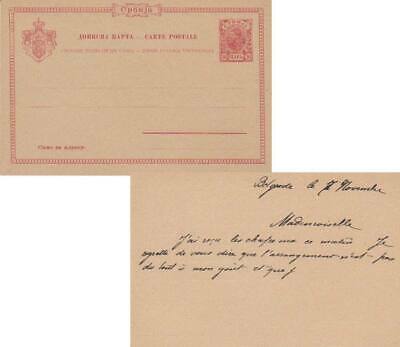 Србија
ДОПИСНА КАРТА — CARTE POSTALE
ПАРА
Само за адресу.
Belgrade le 7 Novembre
Mademoiselle
J'ai reçu les chapeaux ce matin Je
regrette de vous dire que l'arrangement n'est pas
du tout à mon goût et que